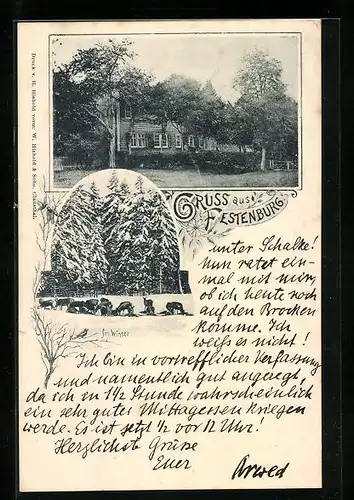 Druck v. H. Bishold vorm: W. Bishold & Sohn, Clausthal.
GRUSS aus
FESTENBURG
Im Winter
unter Schalke!
Nun ratet ein-
mal mit mir,
ob ich heute noch
auf den Brocken
komme. Ich
weiß es nicht!
Ich bin in vortrefflicher Verfassung
und namentlich gut angeregt,
da ich in 1½ Stunde wahrscheinlich
ein sehr gutes Mittagessen kriegen
werde. Es ist jetzt ½ vor 12 Uhr!
Herzlichste Grüsse
Euer Arwed